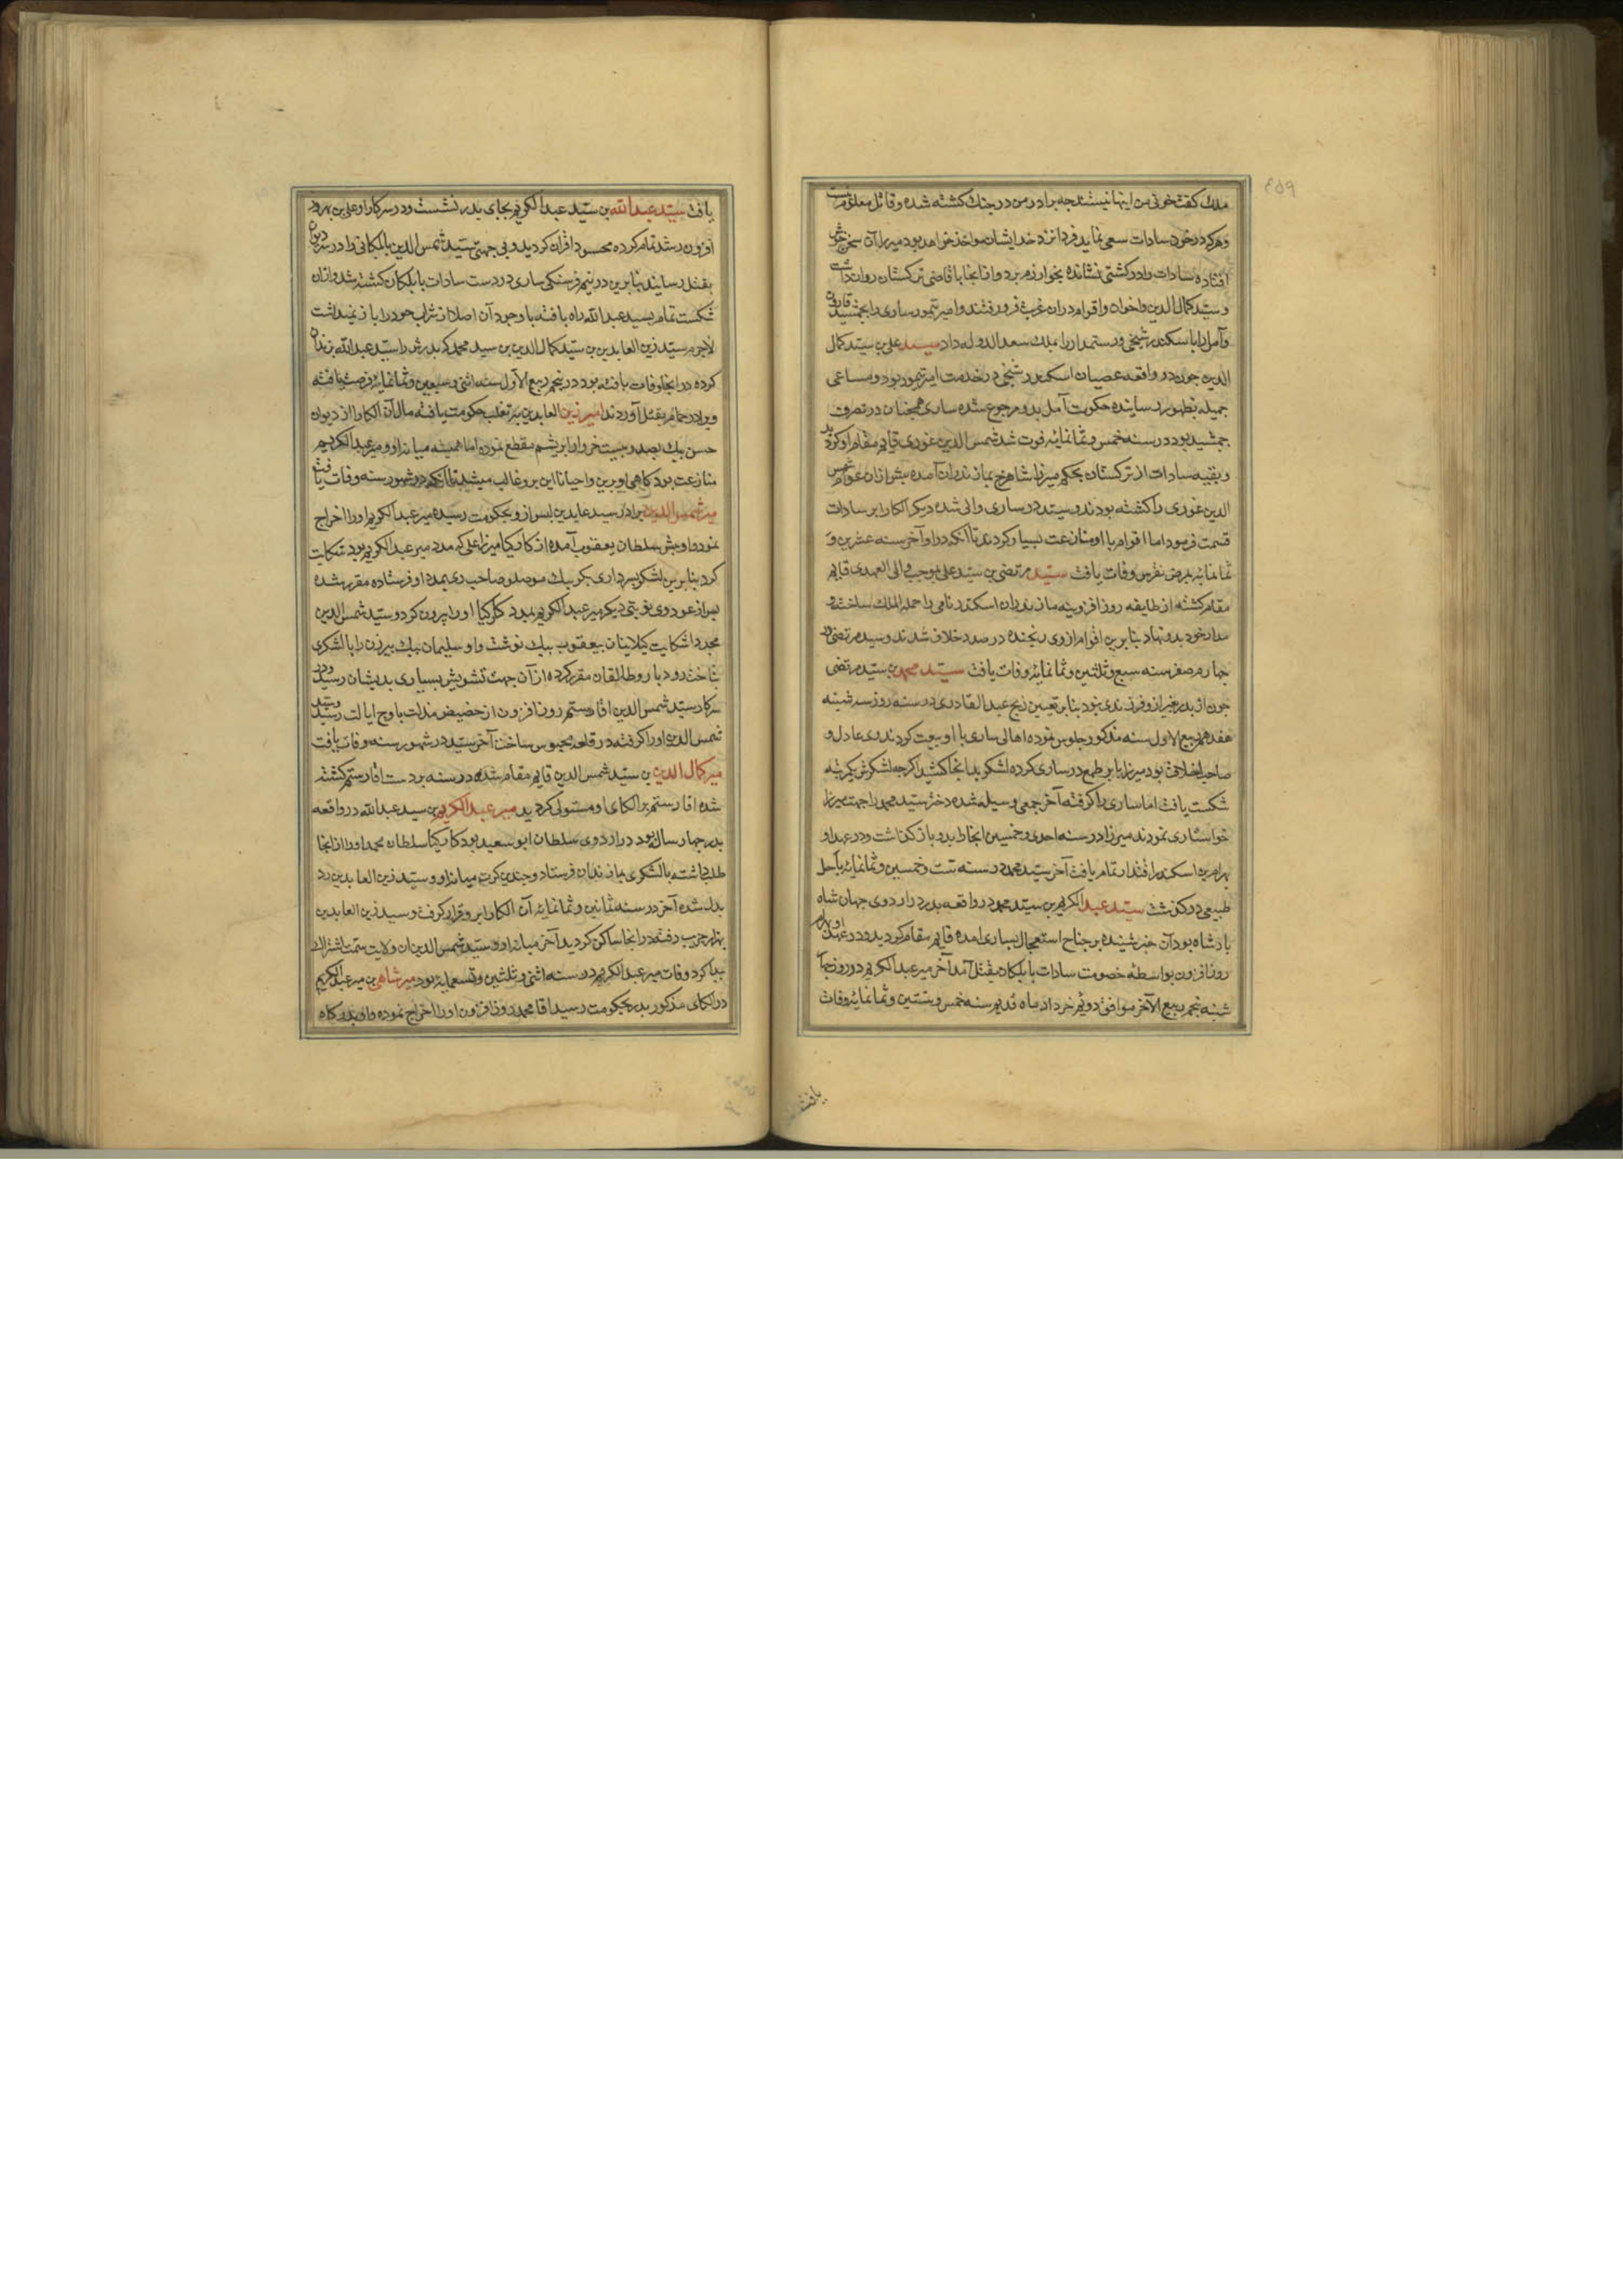 ملك كفت خونى من اينها نيستند چه برادر من در جنك كشته شده و قاتل معلوم نيست
وهركه در خود سادات سعى نمايد فردا نزد خدا ايشان مواخذ خواهد بود ميرزا آن سخن خوش
افتاده سادات را در كشتى نشانده بخوارزم برد و از انجا با قاضى تركستان روان داشت
و سيد كمال الدين و اخوان و اقوام در ان غربت فرو رفتند و امير تيمور سارى را بجمشيد قارن
و آمل را باسكندر شيخى و رستمدار را بملك سعد الدوله داد سيد على بن سيد كمال
الدين چون در واقعه عصيان اسكندر شيخى در خدمت امير تيمور بود و مساعى
جميله بظهور رسانيده حكومت آمل بدو مرجوع شده سارى همچنان در تصرف
جمشيد بود در سنه خمس و ثمانمائه فوت شد شمس الدين غورى قايم مقام او كرديد
و بقيه سادات از تركستان بحكم ميرزا شاهرخ بمازندران آمده پيش ازان عوام شمس
الدين غورى را كشته بودند و سيد در سارى والى شده ديكر الكا را بر سادات
قسمت فرمود اما اقوام با او منازعت بسيار كردند تا آنكه در اواخر سنه عشرين و
ثمانمائه بمرض نقرس وفات يافت سيد مرتضى بن سيد على بموجب ولى العهدى قايم
مقام كشته از طايفه روز افزونيه مازندران اسكندر نامى را جملة الملك ساخته و
مدار خود بدو نهاد بنابرين اقوام از وى رنجيده در صدد خلاف شدند و سيد مرتضى در
چهارم صفر سنه سبع و ثلثين و ثمانمائه وفات يافت سيد محمد بن سيد مرتضى
چون از پدر غير از و فرزندى نبود بنا بر تعيين زيج عبد القادرى در سنه روز سه شنبه
هفدهم ربيع الاول سنه مذكور جلوس نموده اهالى سارى با او بيعت كردند وى عادل و
صاحب اخلاق بود ميرزا بابر طمع در سارى كرده لشكر بدانجا كشيد اكرچه لشكرش يكمرتبه
شكست يافت اما سارى را كرفته آخر جمعى وسيله شده دختر سيد محمد را جهت ميرزا
خواستارى نمودند ميرزا در سنه احدى و خمسين انجا را بدو باز كذاشت و در عهد او
بهرام بن اسكندر اقتدار تمام يافت آخر سيد محمد در سنه ست و خمسين و ثمانمائه باجل
طبيعى در كذشت سيد عبد الكريم بن سيد محمد در واقعه پدر در اردوى جهان شاه
پادشاه بود آن خبر شنيده بر جناح استعجال بسارى امده قايم مقام كرديد و در عهد او بهرام
روز افزون بواسطه خصومت سادات بابلكان بقتل آمد آخر مير عبد الكريم در روز چهار
شنبه پنجم ربيع الآخر موافق دويم خرداد ماه قديم سنه خمس و ستين و ثمانمائه وفات
يافت
يافت سيد عبد الله بن سيد عبد الكريم بجاى پدر نشست و در سركار او على بن بهرام روز
افزون رشد تمام كرده محسود اقران كرديد و بى جهتى سيد شمس الدين بابلكانى را در سر ديوان
بقتل رسانيد بنابرين در نيم فرسنكى سارى در دست سادات بابلكان كشته شد و ازان
شكست تمام بسيد عبد الله راه يافته با وجود آن اصلا از شراب خود را باز نميداشت
لاجرم سيد زين العابدين بن سيد كمال الدين بن سيد محمد كه پدرش را سيد عبد الله بزندان
كرده در انجا وفات يافته بود در پنجم ربيع الاول سنه اثنى و سبعين و ثمانمائه فرصت يافته
ويرا در حمام بقتل آوردند امير زين العابدين بر تغلب حكومت يافته مال آن الكا را از ديوان
حسن بيك بصد و بيست خروار ابريشم مقطع نموده اما هميشه ميانه او و مير عبد الكريم
منازعت بود كاهى او برين و احيانا اين برو غالب ميشد تا آنكه در شهور سنه وفات يافت
مير شمس الدين برادر سيد عابدين پس از و بحكومت رسيده مير عبد الكريم او را اخراج
نمود و او پيش سلطان يعقوب آمده از كاركيا ميرزا على كه ممد مير عبد الكريم بود شكايت
كرد بنابرين لشكر بسردارى بكر بيك موصلو صاحب رى بمدد او فرستاده مقرر شده
پس از عود وى نوبتى ديكر مير عبد الكريم بمدد كاركيا او را بيرون كرد و سيد شمس الدين
مجددا شكايت كيلانيان بيعقوب بيك نوشت و او سليمان بيك بيژن را با لشكرى
بتاخت رودبار و طالقان مقرر كرده از آن جهت تشويش بسيارى بديشان رسيد و در
سركار سيد شمس الدين اقا رستم روز افزون از حضيض مذلت باوج ايالت رسيد و سيد
شمس الدين او را كرفته در قلعه محبوس ساخت آخر سيد در شهور سنه وفات يافت
مير كمال الدين بن سيد شمس الدين قايم مقام شده در سنه بر دست اقا رستم كشته
شده اقا رستم بر الكاى او مستولى كرديد مير عبد الكريم بن سيد عبد الله در واقعه
پدر چهار ساله بود در اردوى سلطان ابو سعيد بود كاركيا سلطان محمد او را از انجا
طلب داشته با لشكرى بمازندران فرستاد و چندين كرت ميانه او و سيد زين العابدين رد
بدل شده آخر در سنه ثمانين و ثمانمائه آن الكا را برو قرار كرفت و سيد زين العابدين
بهزار جريب رفته در انجا ساكن كرديد آخر ميانه او و سيد شمس الدين ان ولايت سمت اشتراك
پيدا كرد وفات مير عبد الكريم در سنه اثنى و ثلثين و تسعمايه بود مير شاهى بن مير عبد الكريم
در الكاى مذكور پدر بحكومت رسيد اقا محمد روز افزون او را اخراج نموده و او بدركاه